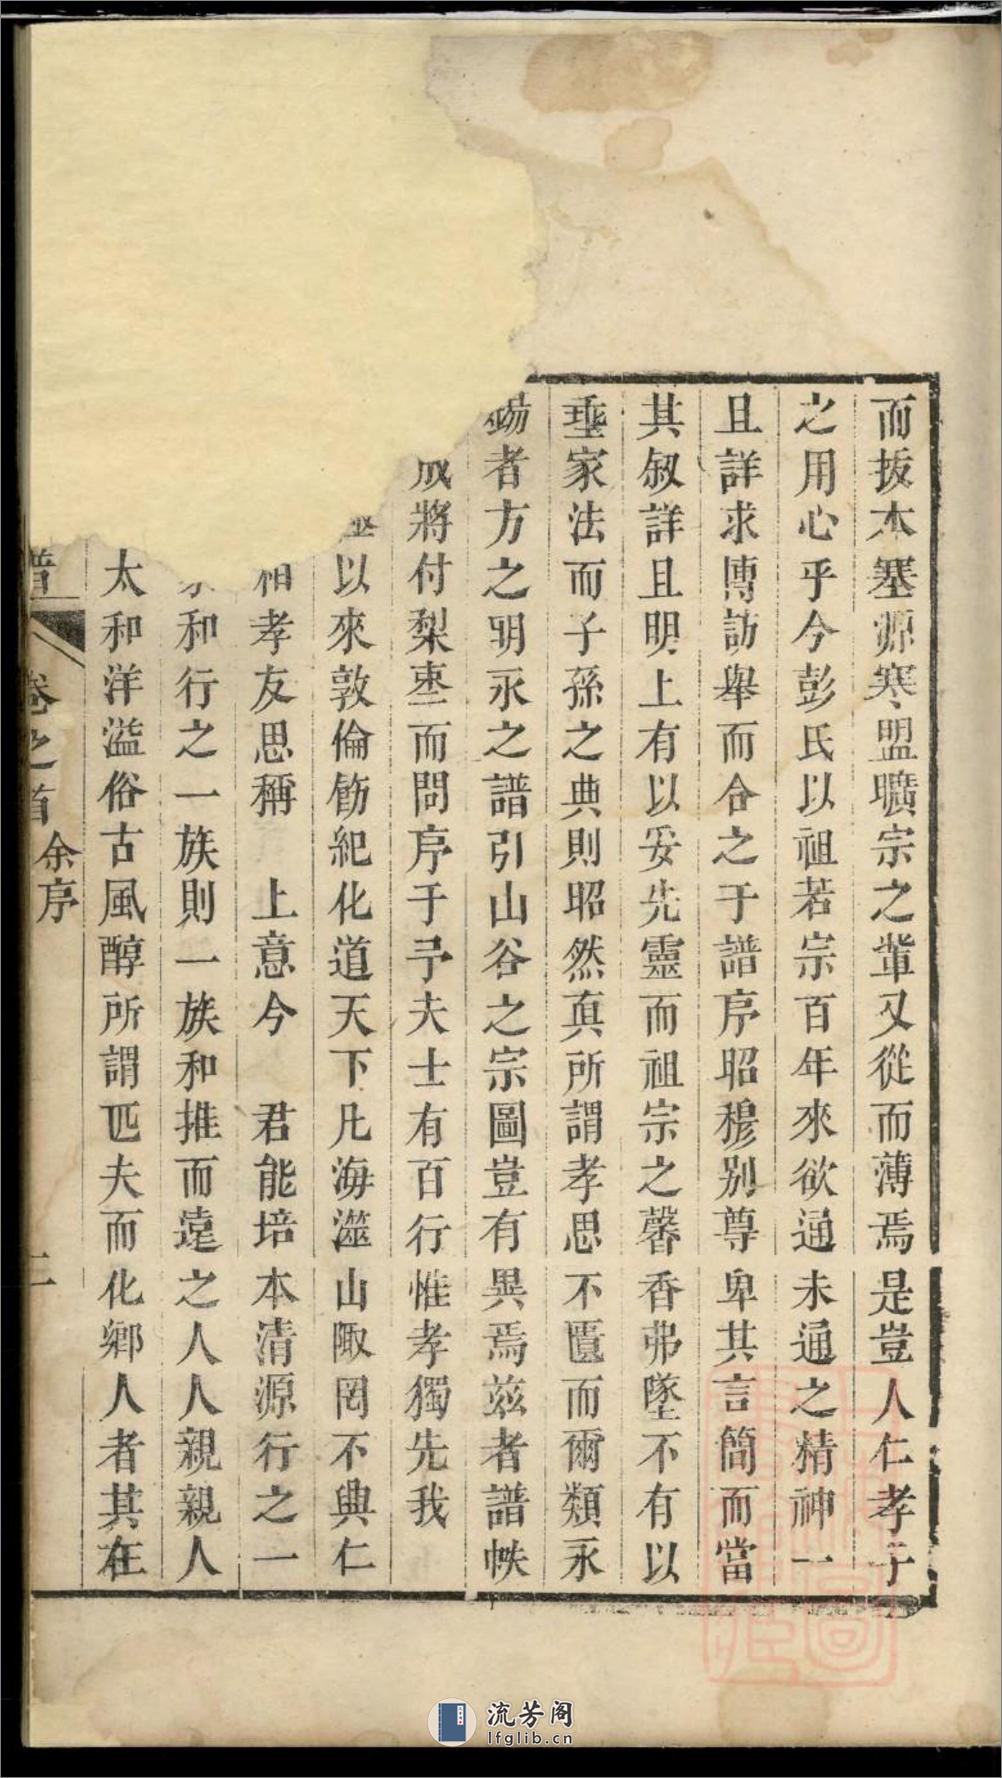 而拔本塞源寒盟曠宗之輩又從而薄焉是豈人仁孝子
之用心乎今彭氏以祖若宗百年來欲通未通之精神一
且詳求博訪舉而合之于譜序昭穆别尊卑其言簡而當
其叙詳且明上有以妥先靈而祖宗之馨香弗墜不有以
垂家法而子孫之典則昭然真所謂孝思不匱而爾類永
錫者方之明永之譜引山谷之宗圖豈有異焉兹者譜帙
成將付梨棗而問序于予夫士有百行惟孝獨先我
以來敦倫飭紀化道天下凡海澨山陬罔不興仁
孝友思稱 上意今 君能培本清源行之一
和行之一族則一族和推而遠之人人親親人
太和洋溢俗古風醇所謂匹夫而化鄉人者其在
譜 卷之首 余序 二
流芳阁
lfglib.cn